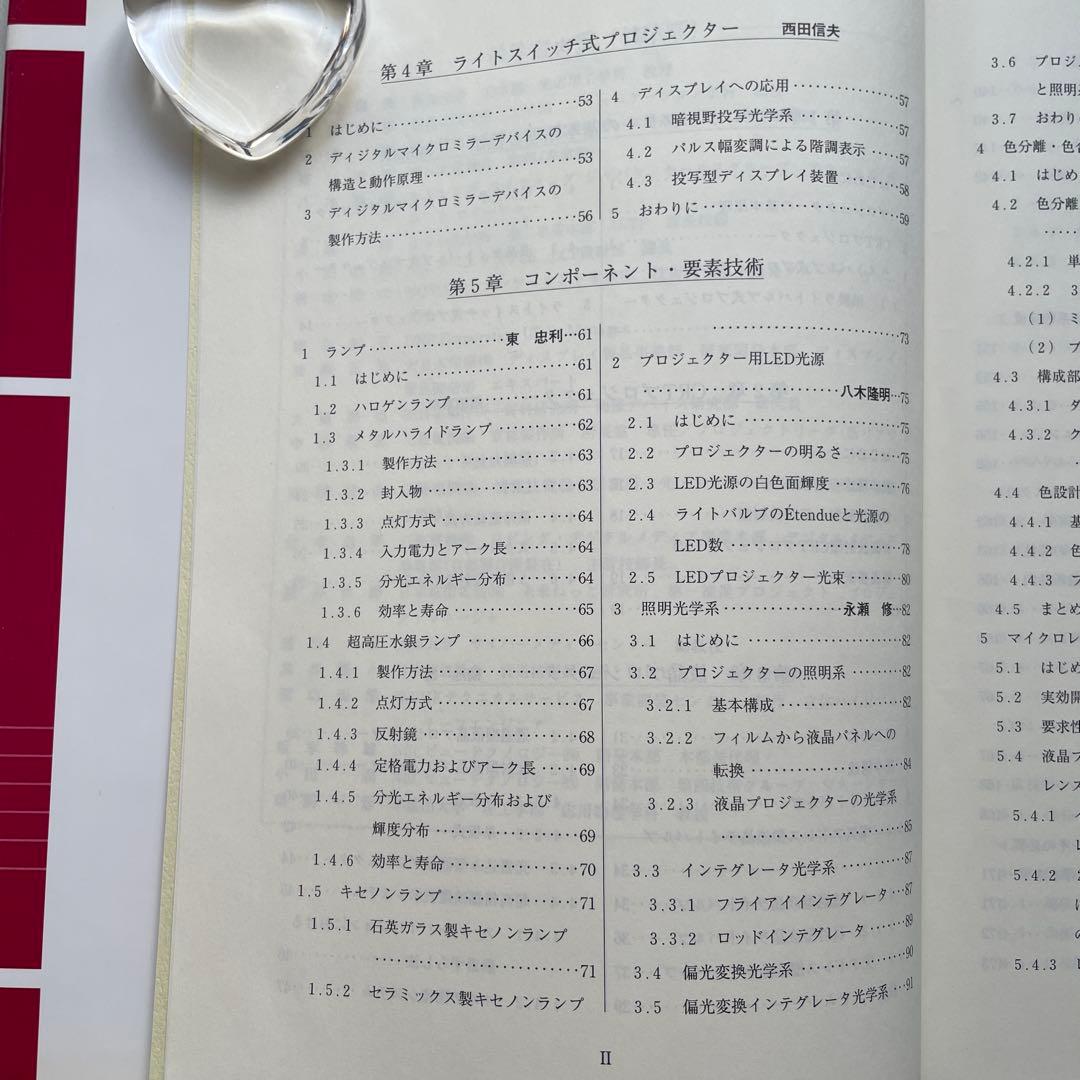 第4章 ライトスイッチ式プロジェクター 西田信夫
1 はじめに………………………53
2 ディジタルマイクロミラーデバイスの
構造と動作原理………………………53
3 ディジタルマイクロミラーデバイスの
製作方法………………………56
4 ディスプレイへの応用………………57
4.1 暗視野投写光学系………………57
4.2 パルス幅変調による階調表示……57
4.3 投写型ディスプレイ装置…………58
5 おわりに………………………59
第5章 コンポーネント・要素技術
1 ランプ………………東 忠利…61
1.1 はじめに………………………61
1.2 ハロゲンランプ………………61
1.3 メタルハライドランプ…………62
1.3.1 製作方法………………63
1.3.2 封入物………………63
1.3.3 点灯方式………………64
1.3.4 入力電力とアーク長………64
1.3.5 分光エネルギー分布………64
1.3.6 効率と寿命………………65
1.4 超高圧水銀ランプ………………66
1.4.1 製作方法………………67
1.4.2 点灯方式………………67
1.4.3 反射鏡………………68
1.4.4 定格電力およびアーク長……69
1.4.5 分光エネルギー分布および
輝度分布………………69
1.4.6 効率と寿命………………70
1.5 キセノンランプ………………71
1.5.1 石英ガラス製キセノンランプ
………………………71
1.5.2 セラミックス製キセノンランプ
………………………73
2 プロジェクター用LED光源
………………………八木隆明…75
2.1 はじめに………………………75
2.2 プロジェクターの明るさ………75
2.3 LED光源の白色面輝度…………76
2.4 ライトバルブのÉtendueと光源の
LED数………………………78
2.5 LEDプロジェクター光束………80
3 照明光学系………………永瀬 修…82
3.1 はじめに………………………82
3.2 プロジェクターの照明系………82
3.2.1 基本構成………………82
3.2.2 フィルムから液晶パネルへの
転換………………84
3.2.3 液晶プロジェクターの光学系
………………………85
3.3 インテグレータ光学系…………87
3.3.1 フライアイインテグレータ…87
3.3.2 ロッドインテグレータ……89
3.4 偏光変換光学系………………90
3.5 偏光変換インテグレータ光学系…91
II
3.6 プロジ
と照明
3.7 おわり
4 色分離・色
4.1 はじめ
4.2 色分離
………
4.2.1 単
4.2.2 3
(1) ミ
(2) プ
4.3 構成部
4.3.1 ダ
4.3.2 ク
4.4 色設計
4.4.1 基
4.4.2 色
4.4.3 フ
4.5 まとめ
5 マイクロレ
5.1 はじめ
5.2 実効開
5.3 要求性
5.4 液晶プ
レンズ
5.4.1
5.4.2
5.4.3